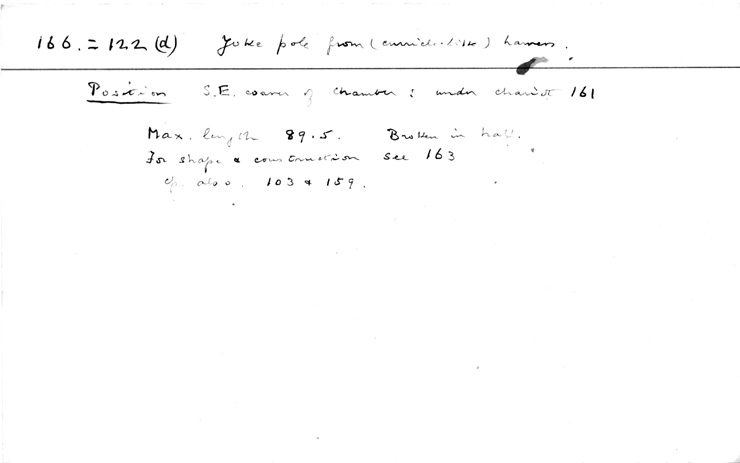 166. = 122 (d) Yoke pole from (curricle-like) harness.
Position S.E. corner of Chamber : under chariot 161
Max. length 89.5. Broken in half.
For shape & construction see 163
cp. also 103 & 159.